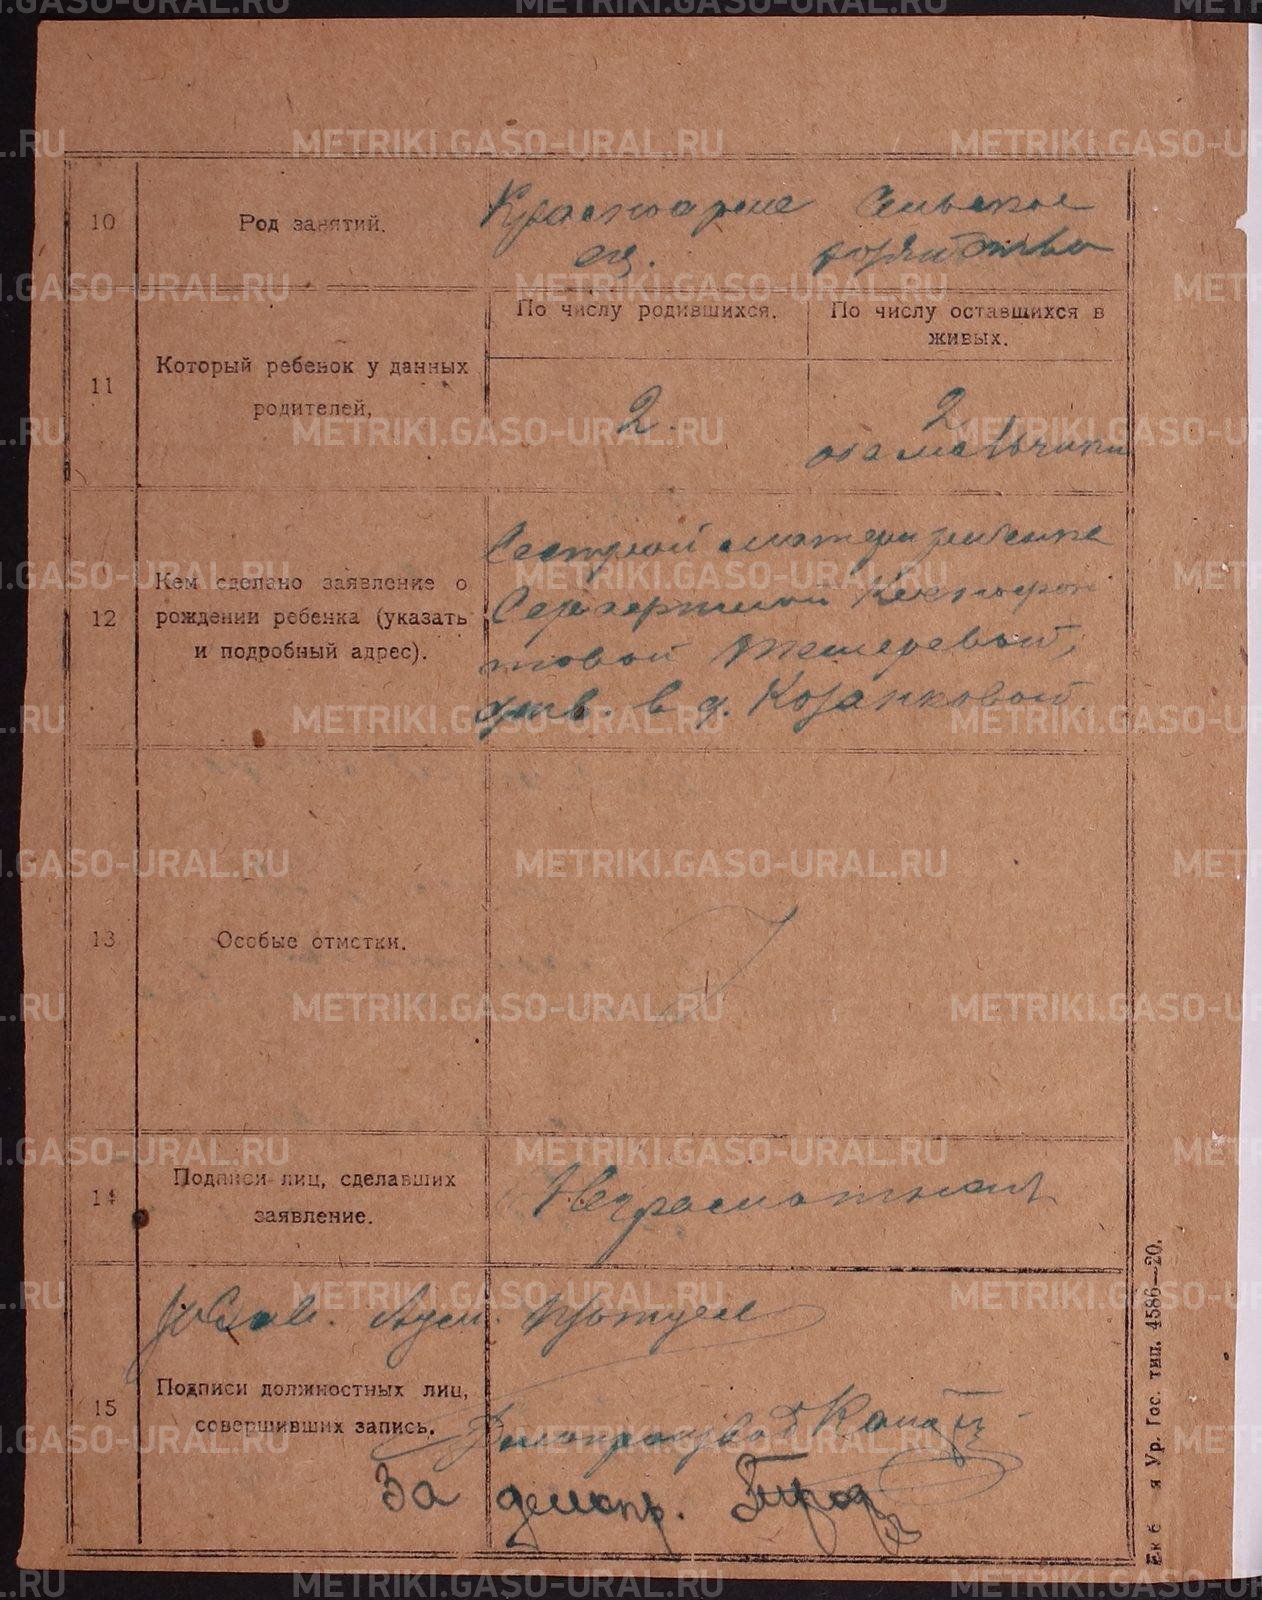 10
Род занятий.
Красноарме
ец.
Сельское
хозяйство
11
Который ребенок у данных
родителей,
По числу родившихся.
По числу оставшихся в
живых.
2.
2
оба мальчики
12
Кем сделано заявление о
рождении ребенка (указать
и подробный адрес).
Сестрой матери ребенка
товой
в д. Казанковой.
13
Особые отметки.
14
Подписи лиц, сделавших
заявление.
Неграмотная
15
Подписи должностных лиц,
совершивших запись.
Делопроизвод
За делопр.
Ур. Гос. тип. 4586—20.
METRIKI.GASO-URAL.RU